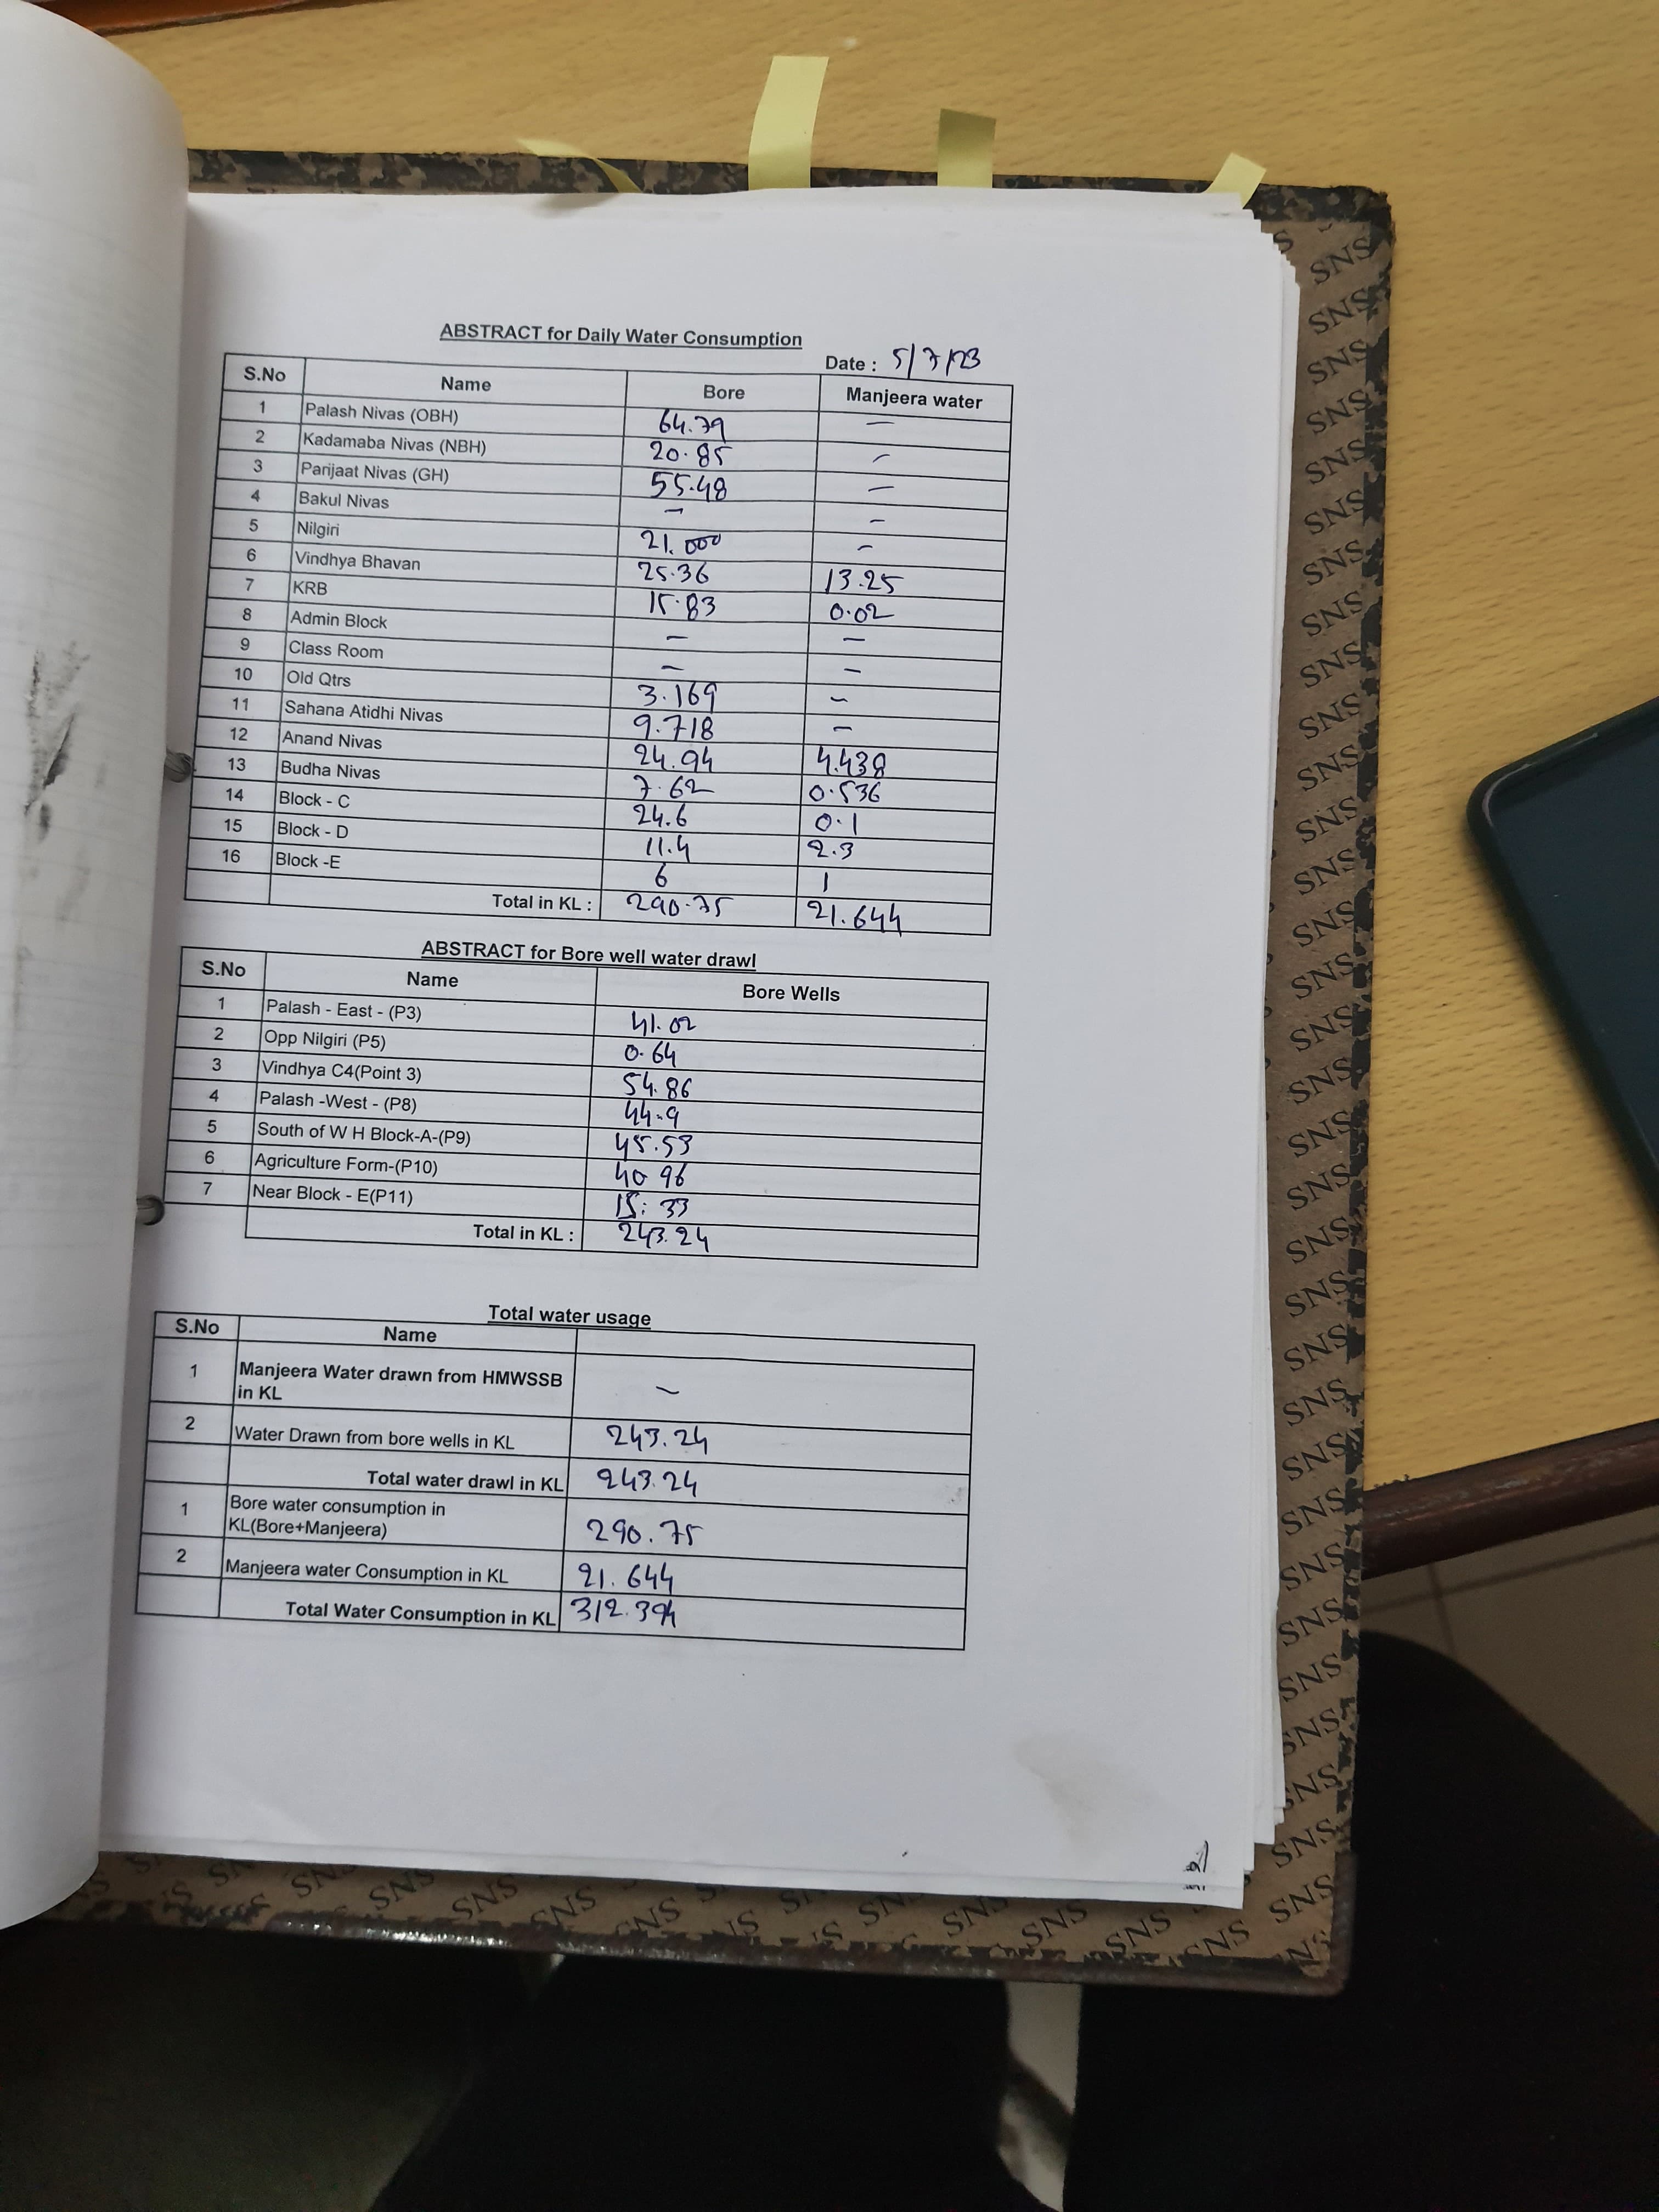 ABSTRACT for Daily Water Consumption
Date : 5/7/23
S.No Name Bore Manjeera water
1 Palash Nivas (OBH) 64.79 —
2 Kadamaba Nivas (NBH) 20.85 —
3 Parijaat Nivas (GH) 55.48 —
4 Bakul Nivas — —
5 Nilgiri 21.000 —
6 Vindhya Bhavan 25.36 13.25
7 KRB 15.83 0.02
8 Admin Block — —
9 Class Room — —
10 Old Qtrs 3.169 —
11 Sahana Atidhi Nivas 9.718 —
12 Anand Nivas 24.94 4.438
13 Budha Nivas 7.62 0.536
14 Block - C 24.6 0.1
15 Block - D 11.4 2.3
16 Block -E 6 1
Total in KL : 290.75 21.644
ABSTRACT for Bore well water drawl
S.No Name Bore Wells
1 Palash - East - (P3) 41.02
2 Opp Nilgiri (P5) 0.64
3 Vindhya C4(Point 3) 54.86
4 Palash -West - (P8) 44.9
5 South of W H Block-A-(P9) 45.53
6 Agriculture Form-(P10) 40 96
7 Near Block - E(P11) 15: 33
Total in KL : 243.24
Total water usage
S.No Name
1 Manjeera Water drawn from HMWSSB
in KL —
2 Water Drawn from bore wells in KL 243.24
Total water drawl in KL 243.24
1 Bore water consumption in
KL(Bore+Manjeera) 290.75
2 Manjeera water Consumption in KL 21.644
Total Water Consumption in KL 312.394
SNS